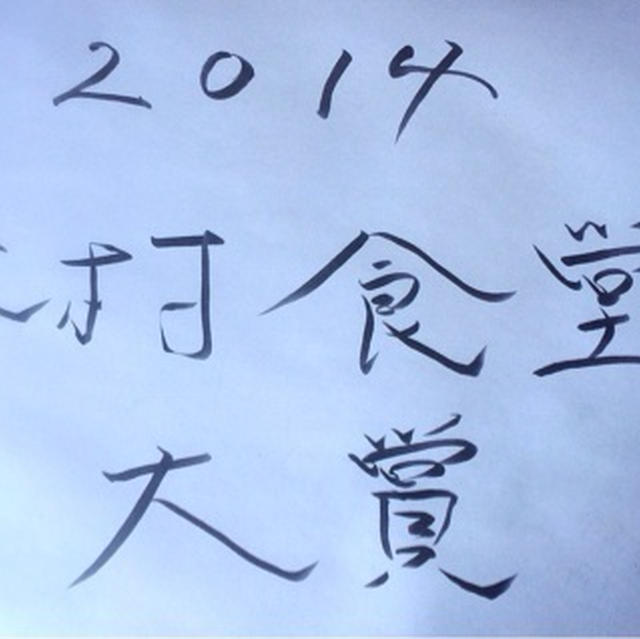 2014
村食堂
大賞